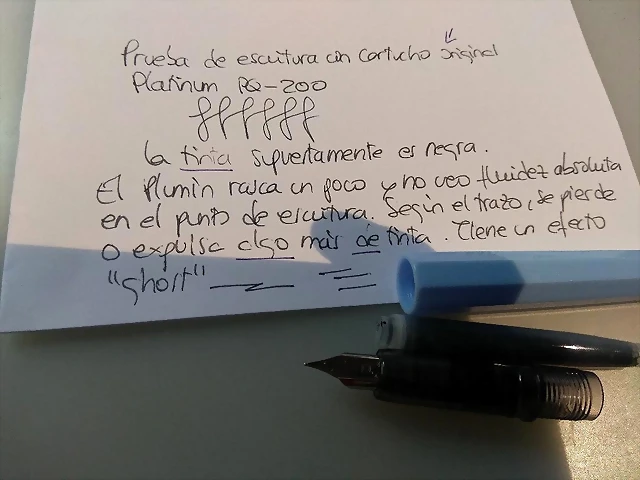 Prueba de escritura con cartucho original
Platinum PQ-200
ffffff
La tinta supuestamente es negra.
El plumín rasca un poco y no veo fluidez absoluta
en el punto de escritura. Según el trazo, se pierde
o expulsa algo más de tinta. Tiene un efecto
"ghost"